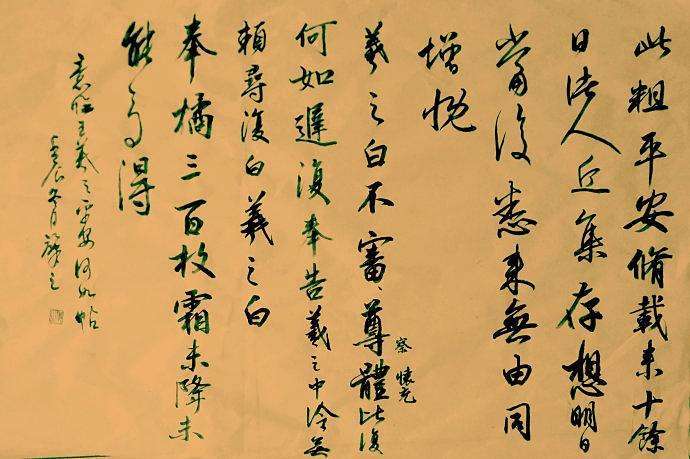 此粗平安脩載来十餘
日諸人近集存想明日
當復悉来無由同
增慨
羲之白不審尊體比復
察 懷充
何如遲復奉告羲之中冷無
賴尋復白羲之白
奉橘三百枚霜未降未
能多得
意臨王羲之平安何如帖